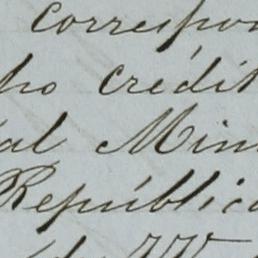 correspon
ho crédit
al Min
República